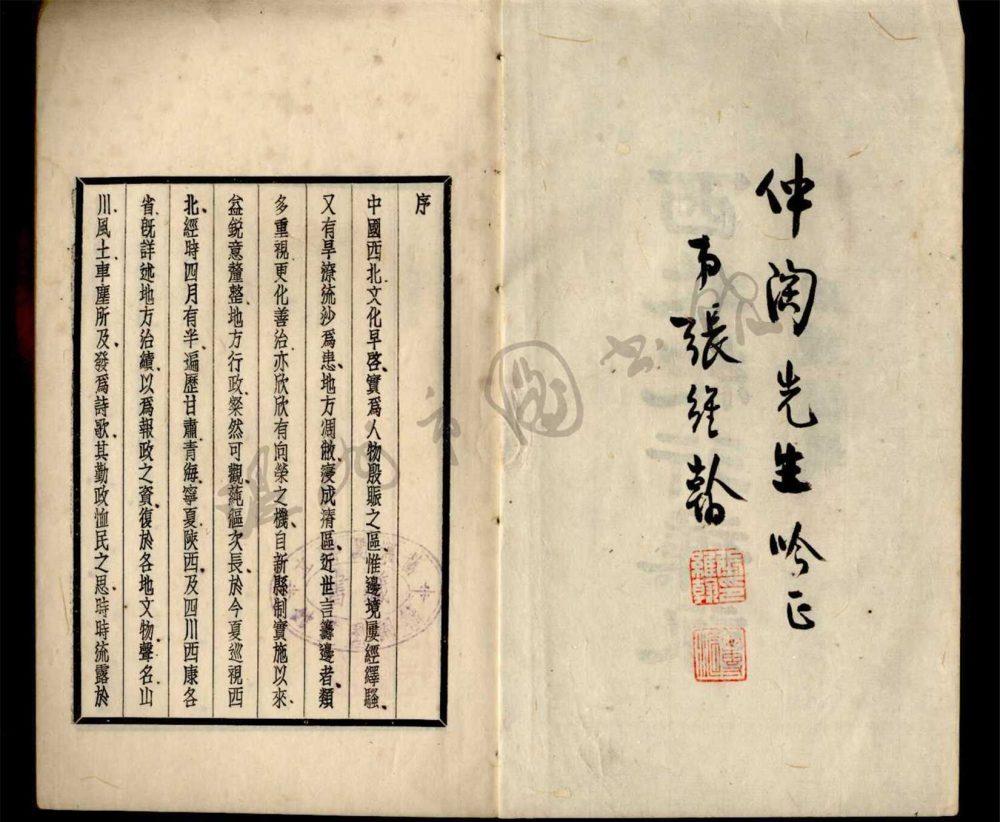 仲陶先生吟正
弟張維翰
張印維翰
序
中國西北文化早啓、實爲人物殷賑之區、惟邊境屢經繹騷、
又有旱潦流沙爲患、地方凋敝、寖成瘠區、近世言籌邊者、類
多重視、更化善治、亦欣欣有向榮之機、自新縣制實施以來、
益銳意釐整、地方行政、粲然可觀、蒓漚次長於今夏巡視西
北、經時四月有半、遍歷甘肅青海寧夏陝西、及四川西康各
省、旣詳述地方治績、以爲報政之資、復於各地文物聲名、山
川風土、車塵所及、發爲詩歌、其勤政恤民之思、時時流露於